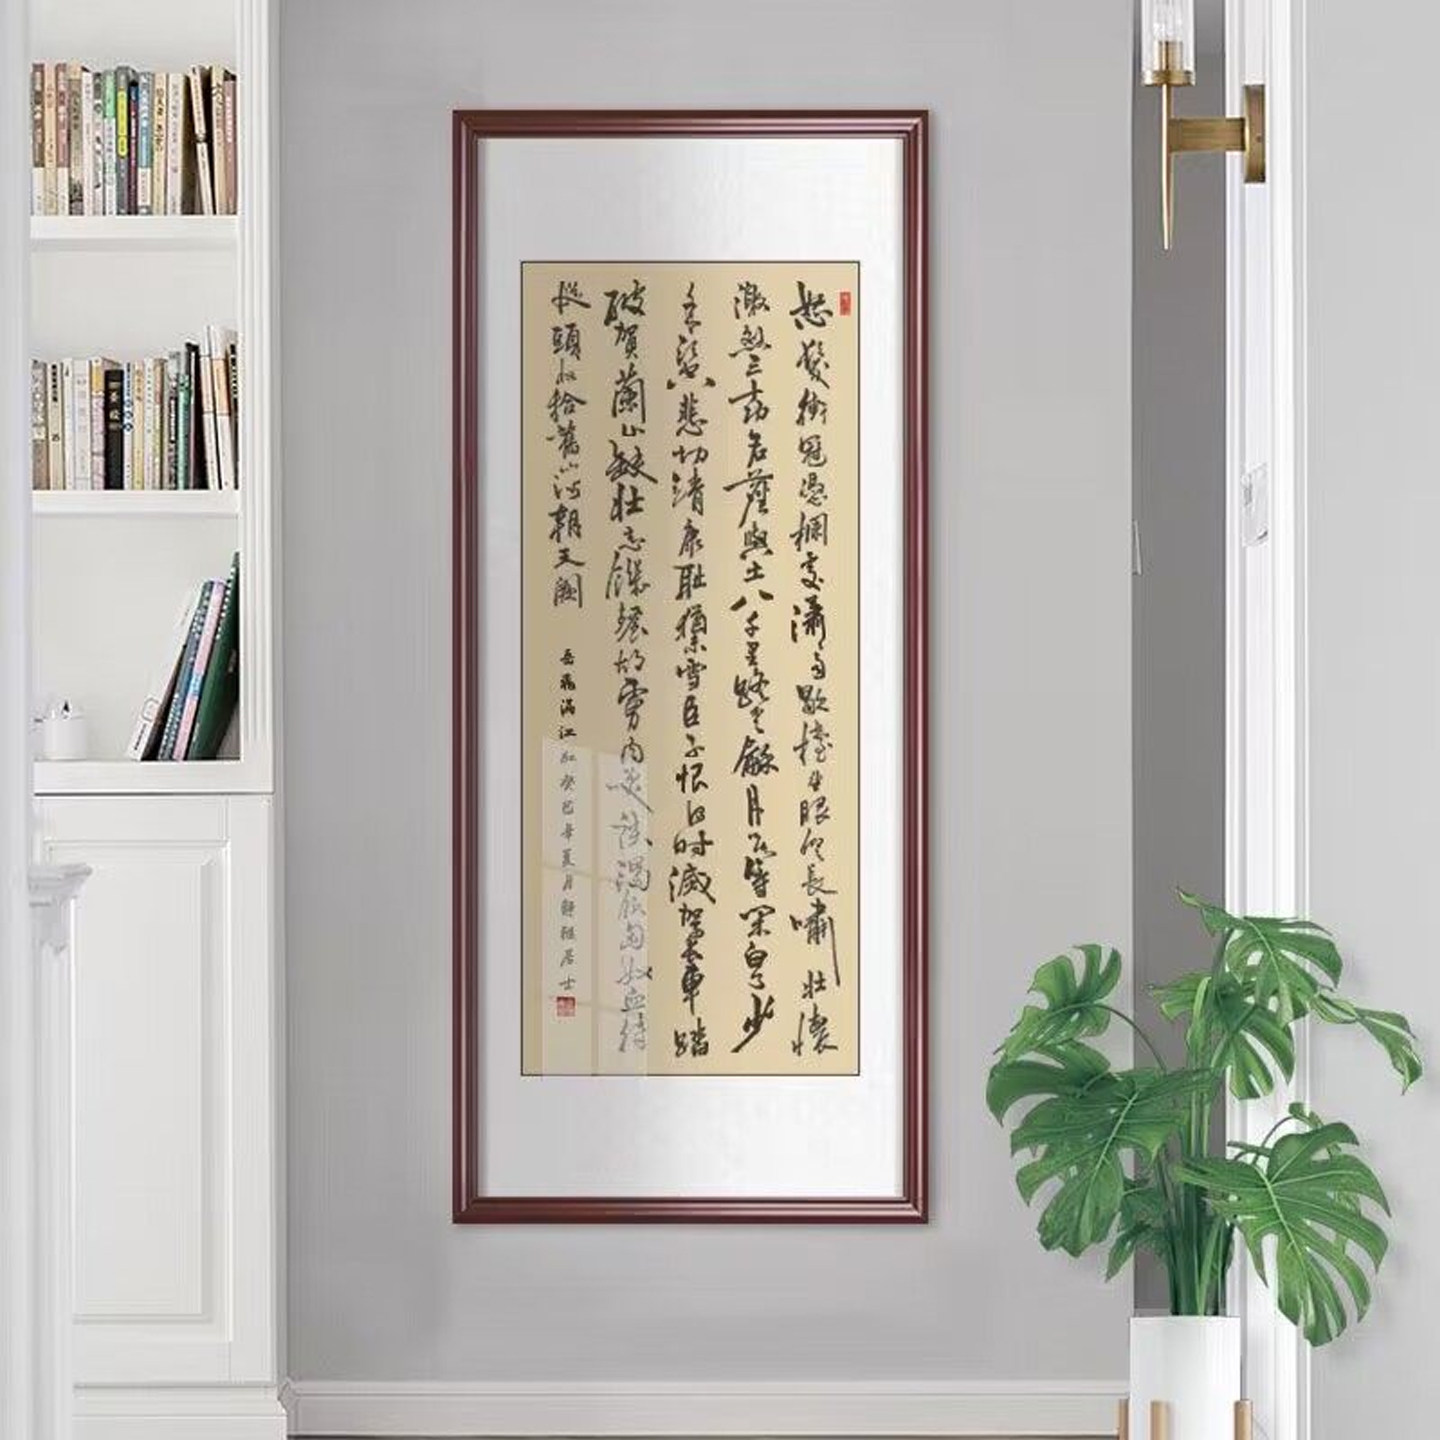 怒髮衝冠憑欄處瀟々雨歇擡望眼仰長嘯壯懷
激烈三十功名塵與土八千里路雲龢月莫等閑白了少
年頭空悲切靖康恥猶未雪臣子恨何時滅駕長車踏
破賀蘭山缺壯志飢餐胡虜肉笑談渴飲匈奴血待
從頭收拾舊山河朝天闕
岳飛滿江紅癸巳年夏月靜雅居士